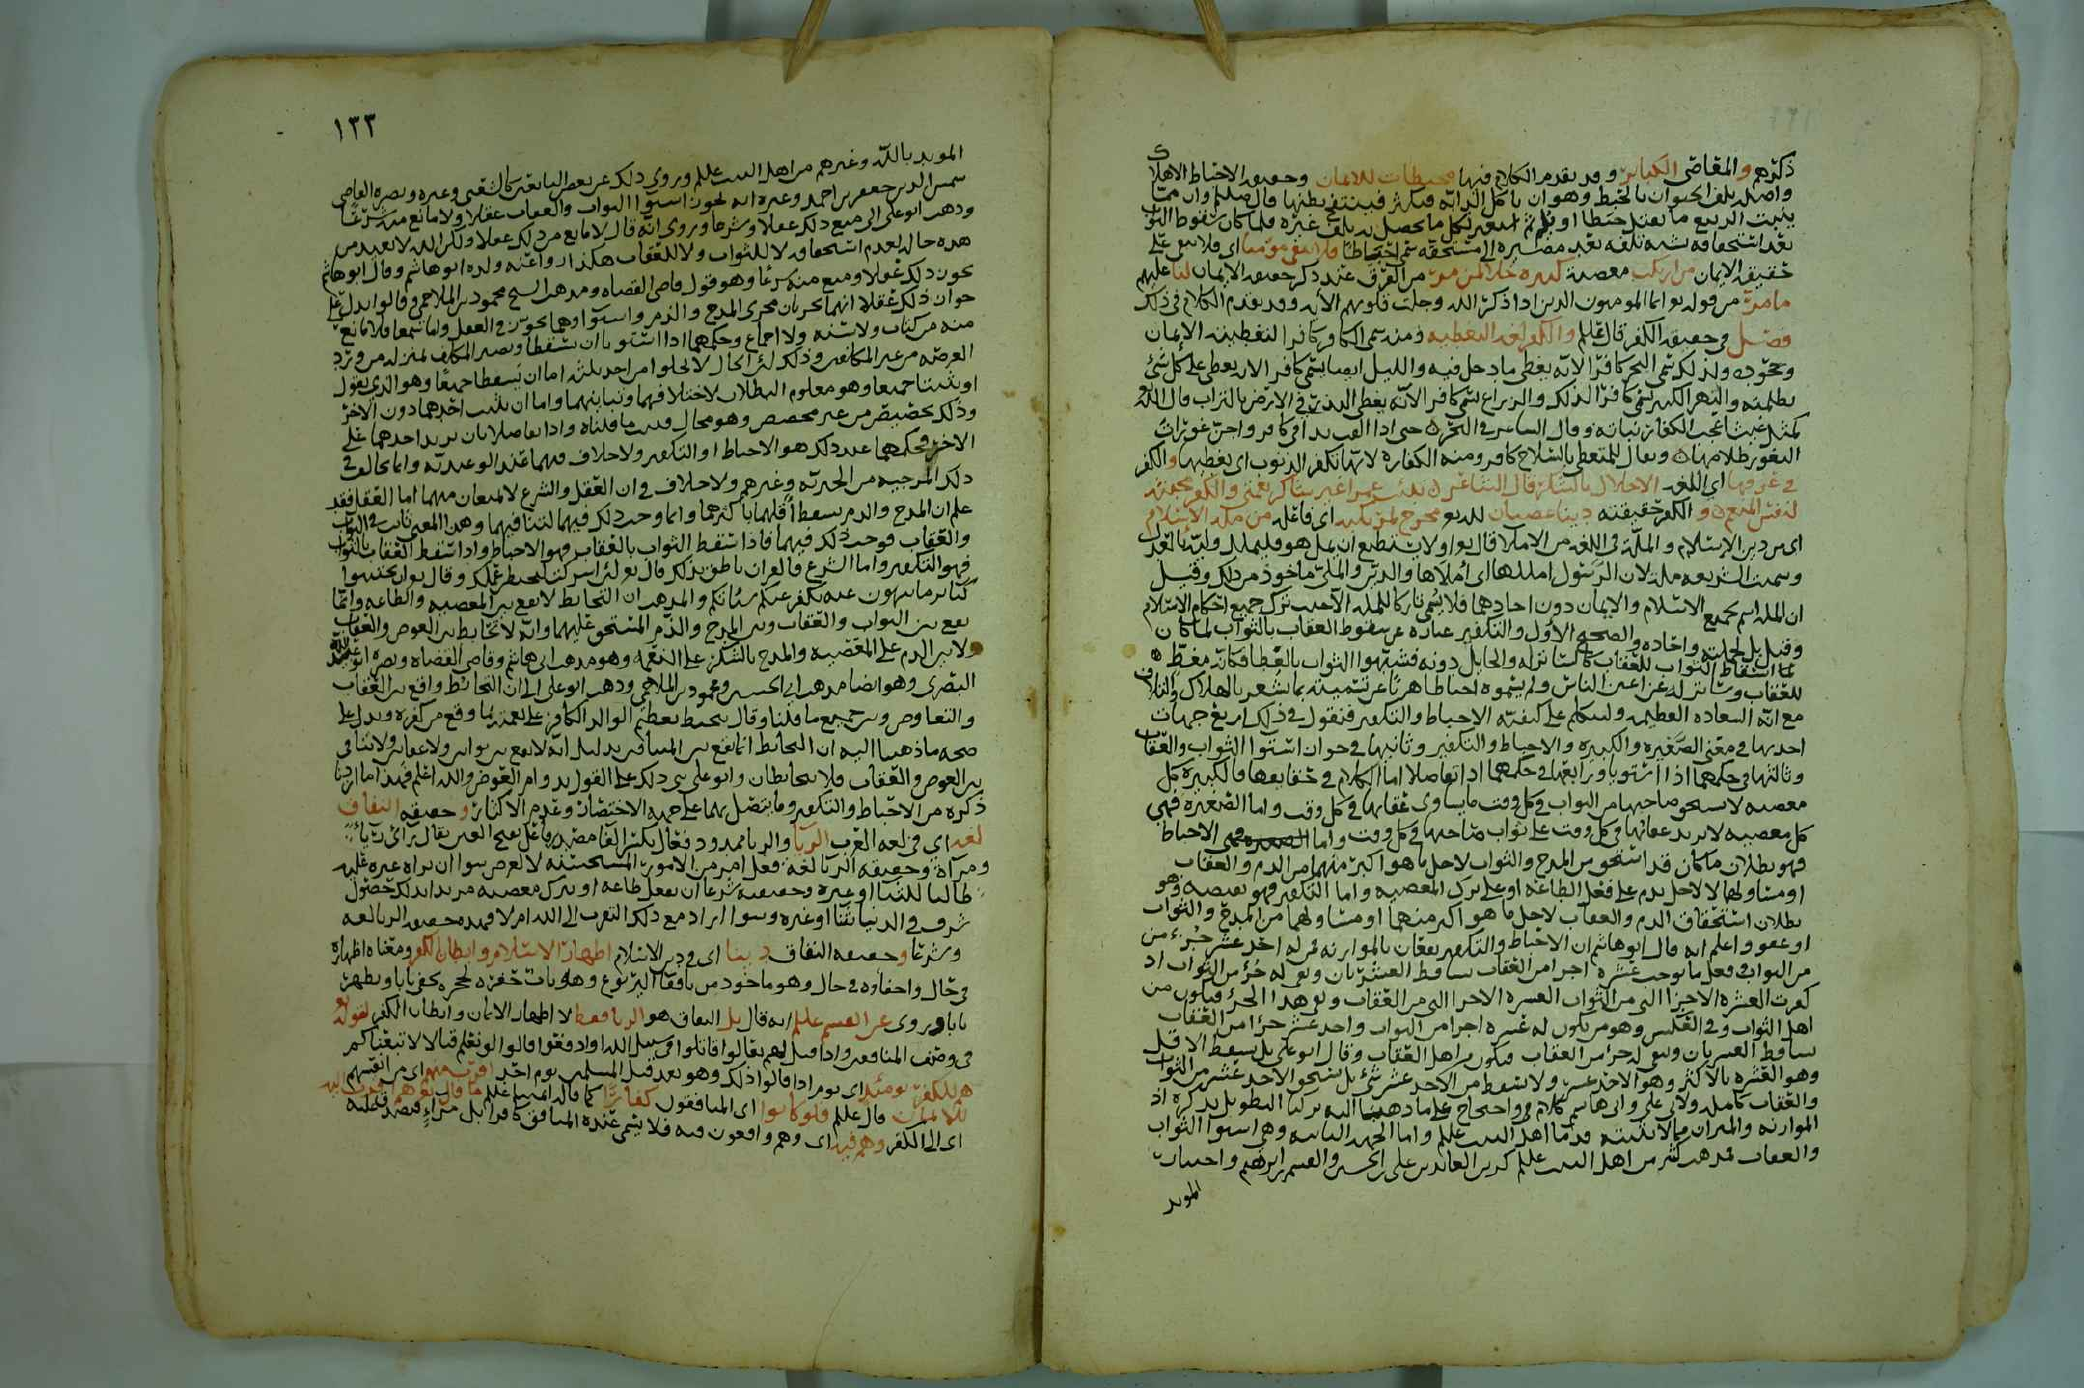 ذكرهم والمعاصي الكبائر وقد تقدم الكلام فيها محبطات للايمان وحقيقة الاحباط الاهلاك
واصله تلف الحيوان بالحبط وهو ان تاكل الدابة فتكثر فينتفخ بطنها قال صلعم وان مما
ينبت الربيع ما يقتل حبطا او يلم
بعد استحقاقه شبه تلفه بعد مصيره الى مستحقه سمي احباطا فلا يبقى مومنا اي فلا يبقى على
حقيقة الايمان من ارتكب معصية كبيرة خلافا لمن مر من الفرق عند ذكر حقيقة الايمان لنا عليهم
ما مر من قوله تع انما المومنون الذين اذا ذكر الله وجلت قلوبهم الآية وقد تقدم الكلام في ذلك
فصل في حقيقة الكفر قال عللم والكفر لغة التغطية ومنه سمي الكافر كافرا لتغطيته الايمان
وجحوده ولذلك سمي البحر كافرا لانه يغطي ما دخل فيه والليل ايضا يسمى كافرا لانه يغطي على كل شي
بظلمته والنهر الكبير سمي كافرا لذلك والزراع سمي كافرا لانه يغطي البذر في الارض بالتراب قال الله تع
كمثل غيث اعجب الكفار نباته وقال الشاعر في البحر حتى اذا القت يدا في كافر واجن عورات
الثغور ظلامها ويقال للمتغطي بالسلاح كافر ومنه الكفارة لانها تكفر الذنوب اي تغطيها والكفر
في عرفها اي اللغة الاخلال بالشكر قال الشاعر نبئت عمرا غير شاكر نعمتي والكفر مخبثة
لنفس المنعم و الكفر حقيقته دينا عصيان لله تع مخرج لمرتكبه اي فاعله من ملة الاسلام
اي من دين الاسلام والملة في اللغة من الاملا قال تع او لا يستطيع ان يمل هو فليملل وليه بالعدل
وسميت الشريعة ملة لان الرسول امللها اي املاها والدين والملي ماخوذ من ذلك وقيل
ان الملة اسم لجميع الاسلام والايمان دون احادها فلا يسمى تاركا للملة الا حيث ترك جميع احكام الاسلام
وقيل بل لجملته واحاده والصحيح الاول والتكفير عبارة عن سقوط العقاب بالثواب لما كان
لما اسقاط الثواب للعقاب كالساتر له والحايل دونه فشبهوا الثواب بالغطا فكانه مغط
للعقاب وساتر له عن اعين الناس ولم يسموه احباطا هربا عن تسميته بما يشعر بالهلاك والتلاف
مع انه السعادة العظيمة ولنتكلم على كيفية الاحباط والتكفير فنقول في ذلك اربع جهات
احديها في معنى الصغيرة والكبيرة والاحباط والتكفير وثانيها في جواز استوا الثواب والعقاب
وثالثها في حكمهما اذا استويا ورابعها في حكمهما اذا تفاضلا اما الكلام في حقايقها فالكبيرة كل
معصية لا يستحق صاحبها من الثواب في كل وقت ما يساوي عقابها في كل وقت واما الصغيرة فهي
كل معصية لا يزيد عقابها في كل وقت على ثواب صاحبها في كل وقت واما الاحباط
فهو بطلان ما كان قد استحق من المدح والثواب لاجل ما هو اكبر منهما من الذم والعقاب
او مساو لهما لا لاجل ندم على فعل الطاعة او على ترك المعصية واما التكفير فهو نقيضه وهو
بطلان استحقاق الذم والعقاب لاجل ما هو اكبر منهما او مساو لهما من المدح والثواب
او عفو واعلم انه قال ابو هاشم ان الاحباط والتكفير يقعان بالموازنة فمن له احد عشر جزء من
من الثواب فعل ما يوجب عشرة اجزا من العقاب تساقط العشرتان وبقي له جزء من الثواب اذ
كفرت العشرة الاجزا التي من الثواب العشرة الاجزا التي من العقاب وبقي هذا الجزء فيكون من
اهل الثواب وفي العكس وهو من يكون له عشرة اجزا من الثواب واحد عشر جزءا من العقاب
تساقط العشرتان وبقي له جزء من العقاب فيكون من اهل العقاب وقال ابو علي بل يسقط الاقل
وهو العشرة بالاكثر وهو الاحد عشر ولا يسقط من الاحد عشر شي بل يستحق الاحد عشر من الثواب
والعقاب كاملة ولابي علي وابي هاشم كلام واحتجاج على ما ذهبا اليه تركنا التطويل بذكره اذ
الموازنة والميزان مما لا يثبته قدما اهل البيت علهلم واما الجهة الثانية وهي استوا الثواب
والعقاب فمذهب كثير من اهل البيت علهلم كزين العابدين علي بن الحسين والقسم بن ابرهيم واحد
المويد
١٣٣
المويد بالله وغيرهم من اهل البيت علهلم وروي ذلك عن بعض التابعين كالشعبي وغيره ونصره القاضي
شمس الدين جعفر بن احمد وغيره انه يجوز استوا الثواب والعقاب عقلا ولا مانع منه شرعا
وذهب ابو علي الى منع ذلك عقلا وشرعا وروي انه قال لا مانع من ذلك عقلا ولكن الله لا يعبد من
هذه حاله لعدم استحقاقه لا للثواب ولا للعقاب هكذا رواه عنه ولده ابو هاشم وقال ابو هاشم
يجوز ذلك عقلا ومنع منه شرعا وهو قول قاضي القضاه ومذهب الشيخ محمود بن الملاحمي وقالوا يدل على
جواز ذلك عقلا انهما يجريان مجرى المدح والذم واستوا وهما يجوز في العقل واما سمعا فلا مانع
منه من كتاب ولا سنة ولا اجماع وحكمهما اذا استويا ان يسقطا ويصير المكلف بمنزلة من ورد
العرصة من غير المكلفين وذلك لان الحال لا يخلوا من احد ثلث اما ان يسقطا جميعا وهو الذي نقول
او يثبتا جميعا وهو معلوم البطلان لاختلافهما وتباينهما واما ان يثبت احدهما دون الاخر
وذلك تخصيص من غير مخصص وهو محال فثبت ما قلناه واذا تفاضلا بان يزيد احدهما على
الاخر فحكمهما عند ذلك هو الاحباط او التكفير ولا خلاف فيهما عند الوعيدية وانما يخالف في
ذلك المرجية من الجبرية وغيرهم ولا خلاف في ان العقل والشرع لا يمنعان منهما اما العقل فقد
علم ان المدح والذم يسقط اقلهما باكثرهما وانما وجب ذلك فيهما لتنافيهما وهذا المعنى ثابت في الثواب
والعقاب فوجب ذلك فيهما فاذا سقط الثواب بالعقاب فهو الاحباط واذا سقط العقاب بالثواب
فهو التكفير واما الشرع فالقران ناطق بذلك قال تع لئن اشركت ليحبطن عملك وقال تع ان تجتنبوا
كبائر ما تنهون عنه نكفر عنكم سيئاتكم والمذهب ان التحابط لا يقع بين المعصية والطاعة وانما
يقع بين الثواب والعقاب وبين المدح والذم المستحق عليهما وانه لا تحابط بين العوض والعقاب
ولا بين الذم على المعصية والمدح بالشكر على النعمة وهو مذهب ابي هاشم وقاضي القضاه ونصره ابو عبدالله
البصري وهو ايضا مذهب ابي الحسين ومحمود بن الملاحمي وذهب ابو علي الى ان التحابط واقع بين العقاب
والتعاوض وبين جميع ما قلنا وقال ينحبط تعظيم الوالد الكافر على نعمته بما وقع من كفره ويدل على
صحة ما ذهبنا اليه ان التحابط انما يقع بين المتنافيين بدليل انه لا يقع بين ثوابين ولا عقابين ولا تنافي
بين العوض والعقاب فلا يتحابطان وابو علي بنى ذلك على القول بدوام العوض والله اعلم فهذا ما اردنا
ذكره من الاحباط والتكفير وما يتصل بهما على جهة الاختصار وعدم الاكثار وحقيقة النفاق
لغة اي في لغة العرب الريا والريا ممدود فعال بكسر الفا مصدر فاعل بفتح العين يقال رآئ رياء
ومرآة وحقيقة الريا لغة فعل امر من الامور المستحسنة لا لغرض سوا ان يراه غيره عليه
طالبا للثنا او غيره وحقيقته شرعا ان يفعل طاعة او يترك معصية مريدا بذلك حصول
شرف في الدنيا ثنا او غيره وسوا اراد مع ذلك التقرب الى الله ام لا فهذه حقيقة الريا لغة
وشرعا وحقيقة النفاق دينا اي في دين الاسلام اظهار الاسلام وابطان الكفر ومعناه اظهاره
في حال واخفاؤه في حال وهو ماخوذ من نافقا اليربوع وهو بات حفره لجحره يخفي بابا ويظهر
بابا وروي عن القسم علهلم انه قال بل النفاق هو الريا فقط لا اظهار الايمان وابطان الكفر لقوله تع
في وصف المنافقين واذا قيل لهم تعالوا قاتلوا في سبيل الله او ادفعوا قالوا لو نعلم قتالا لاتبعناكم
هم للكفر يومئذ اي يوم اذا قالوا ذلك وهو بعد قتل المسلمين يوم احد اقرب منهم اي من انفسهم
للايمان قال علهلم فلو كانوا اي المنافقون كفارا كما قاله ايمتنا علهلم ما قال تع هم اقرب اليه
اي الى الكفر وهم فيه اي وهم واقعون فيه فلا يسمى عنده المنافق كافرا بل مراءٍ